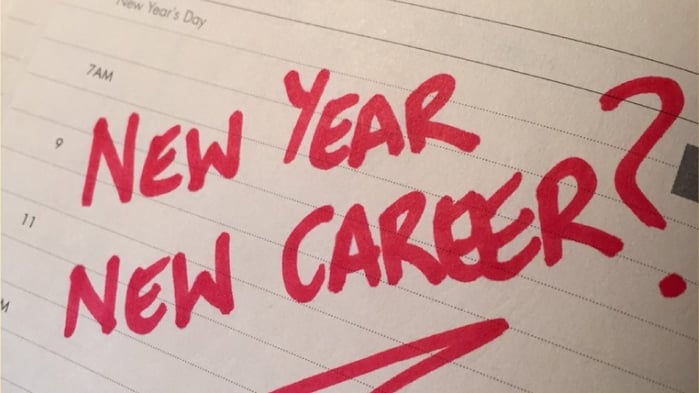 New Year's Day
7AM
NEW YEAR
9
NEW CAREER?
11
M